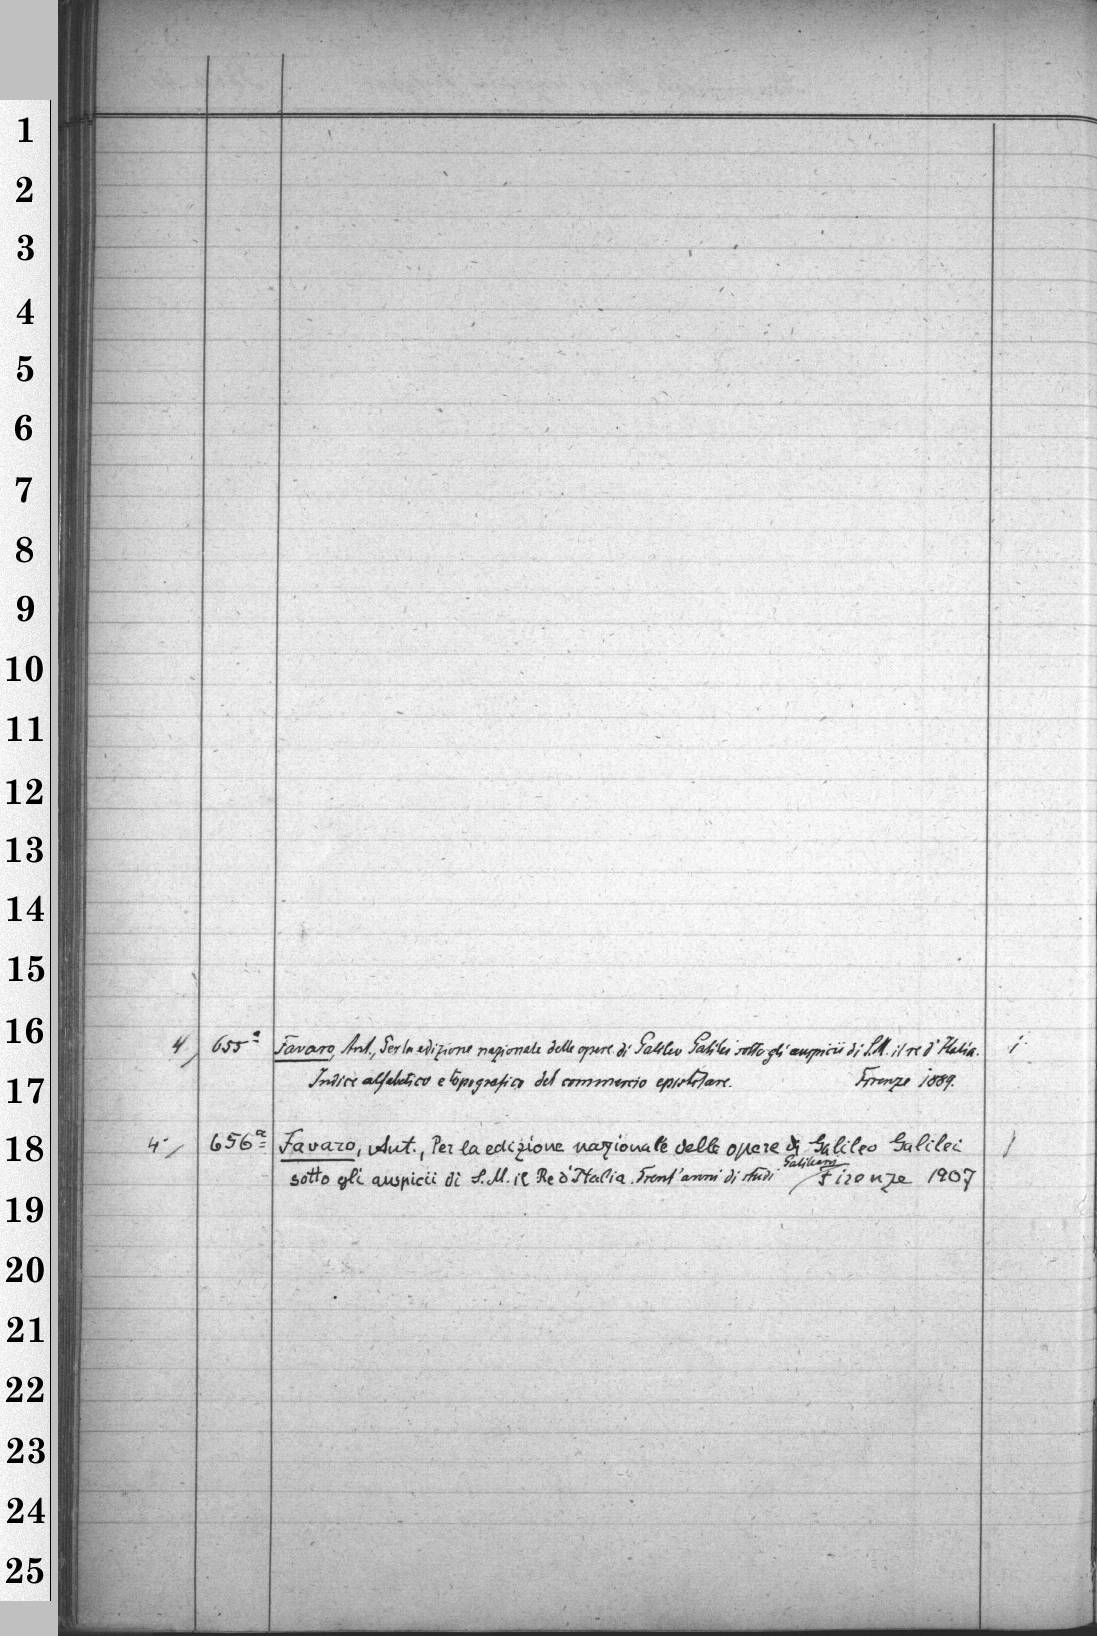 1
2
3
4
5
6
7
8
9
10
11
12
13
14
15
16
17
18
19
20
21
22
23
24
25
4 / 655ª Favaro, Ant., Per la edizione nazionale delle opere di Galileo Galilei sotto gli auspicii di S.M. il re d'Italia. 1
Indice alfabetico e topografico del commercio epistolare. Firenze 1889.
4° / 656ª Favaro, Ant., Per la edizione nazionale delle opere di Galileo Galilei 1
sotto gli auspicii di S. M. il Re d'Italia. Trent'anni di studi Galileiani / Firenze 1907